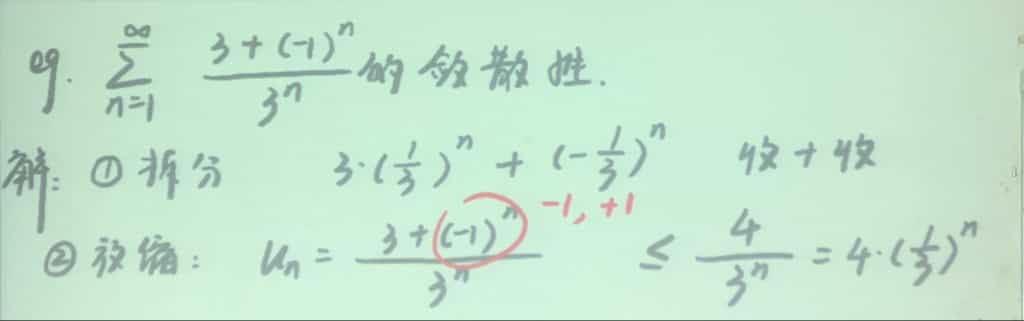 eg. $\sum_{n=1}^{\infty} \frac{3+(-1)^n}{3^n}$ 的敛散性.
解: ① 拆分 $3\cdot(\frac{1}{3})^n + (-\frac{1}{3})^n$ 收+收
② 放缩: $u_n = \frac{3+(-1)^n}{3^n}$ -1, +1 $\le \frac{4}{3^n} = 4\cdot(\frac{1}{3})^n$